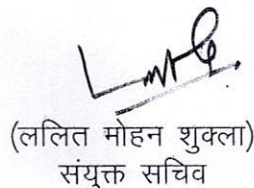 (ललित मोहन शुक्ला)
संयुक्त सचिव